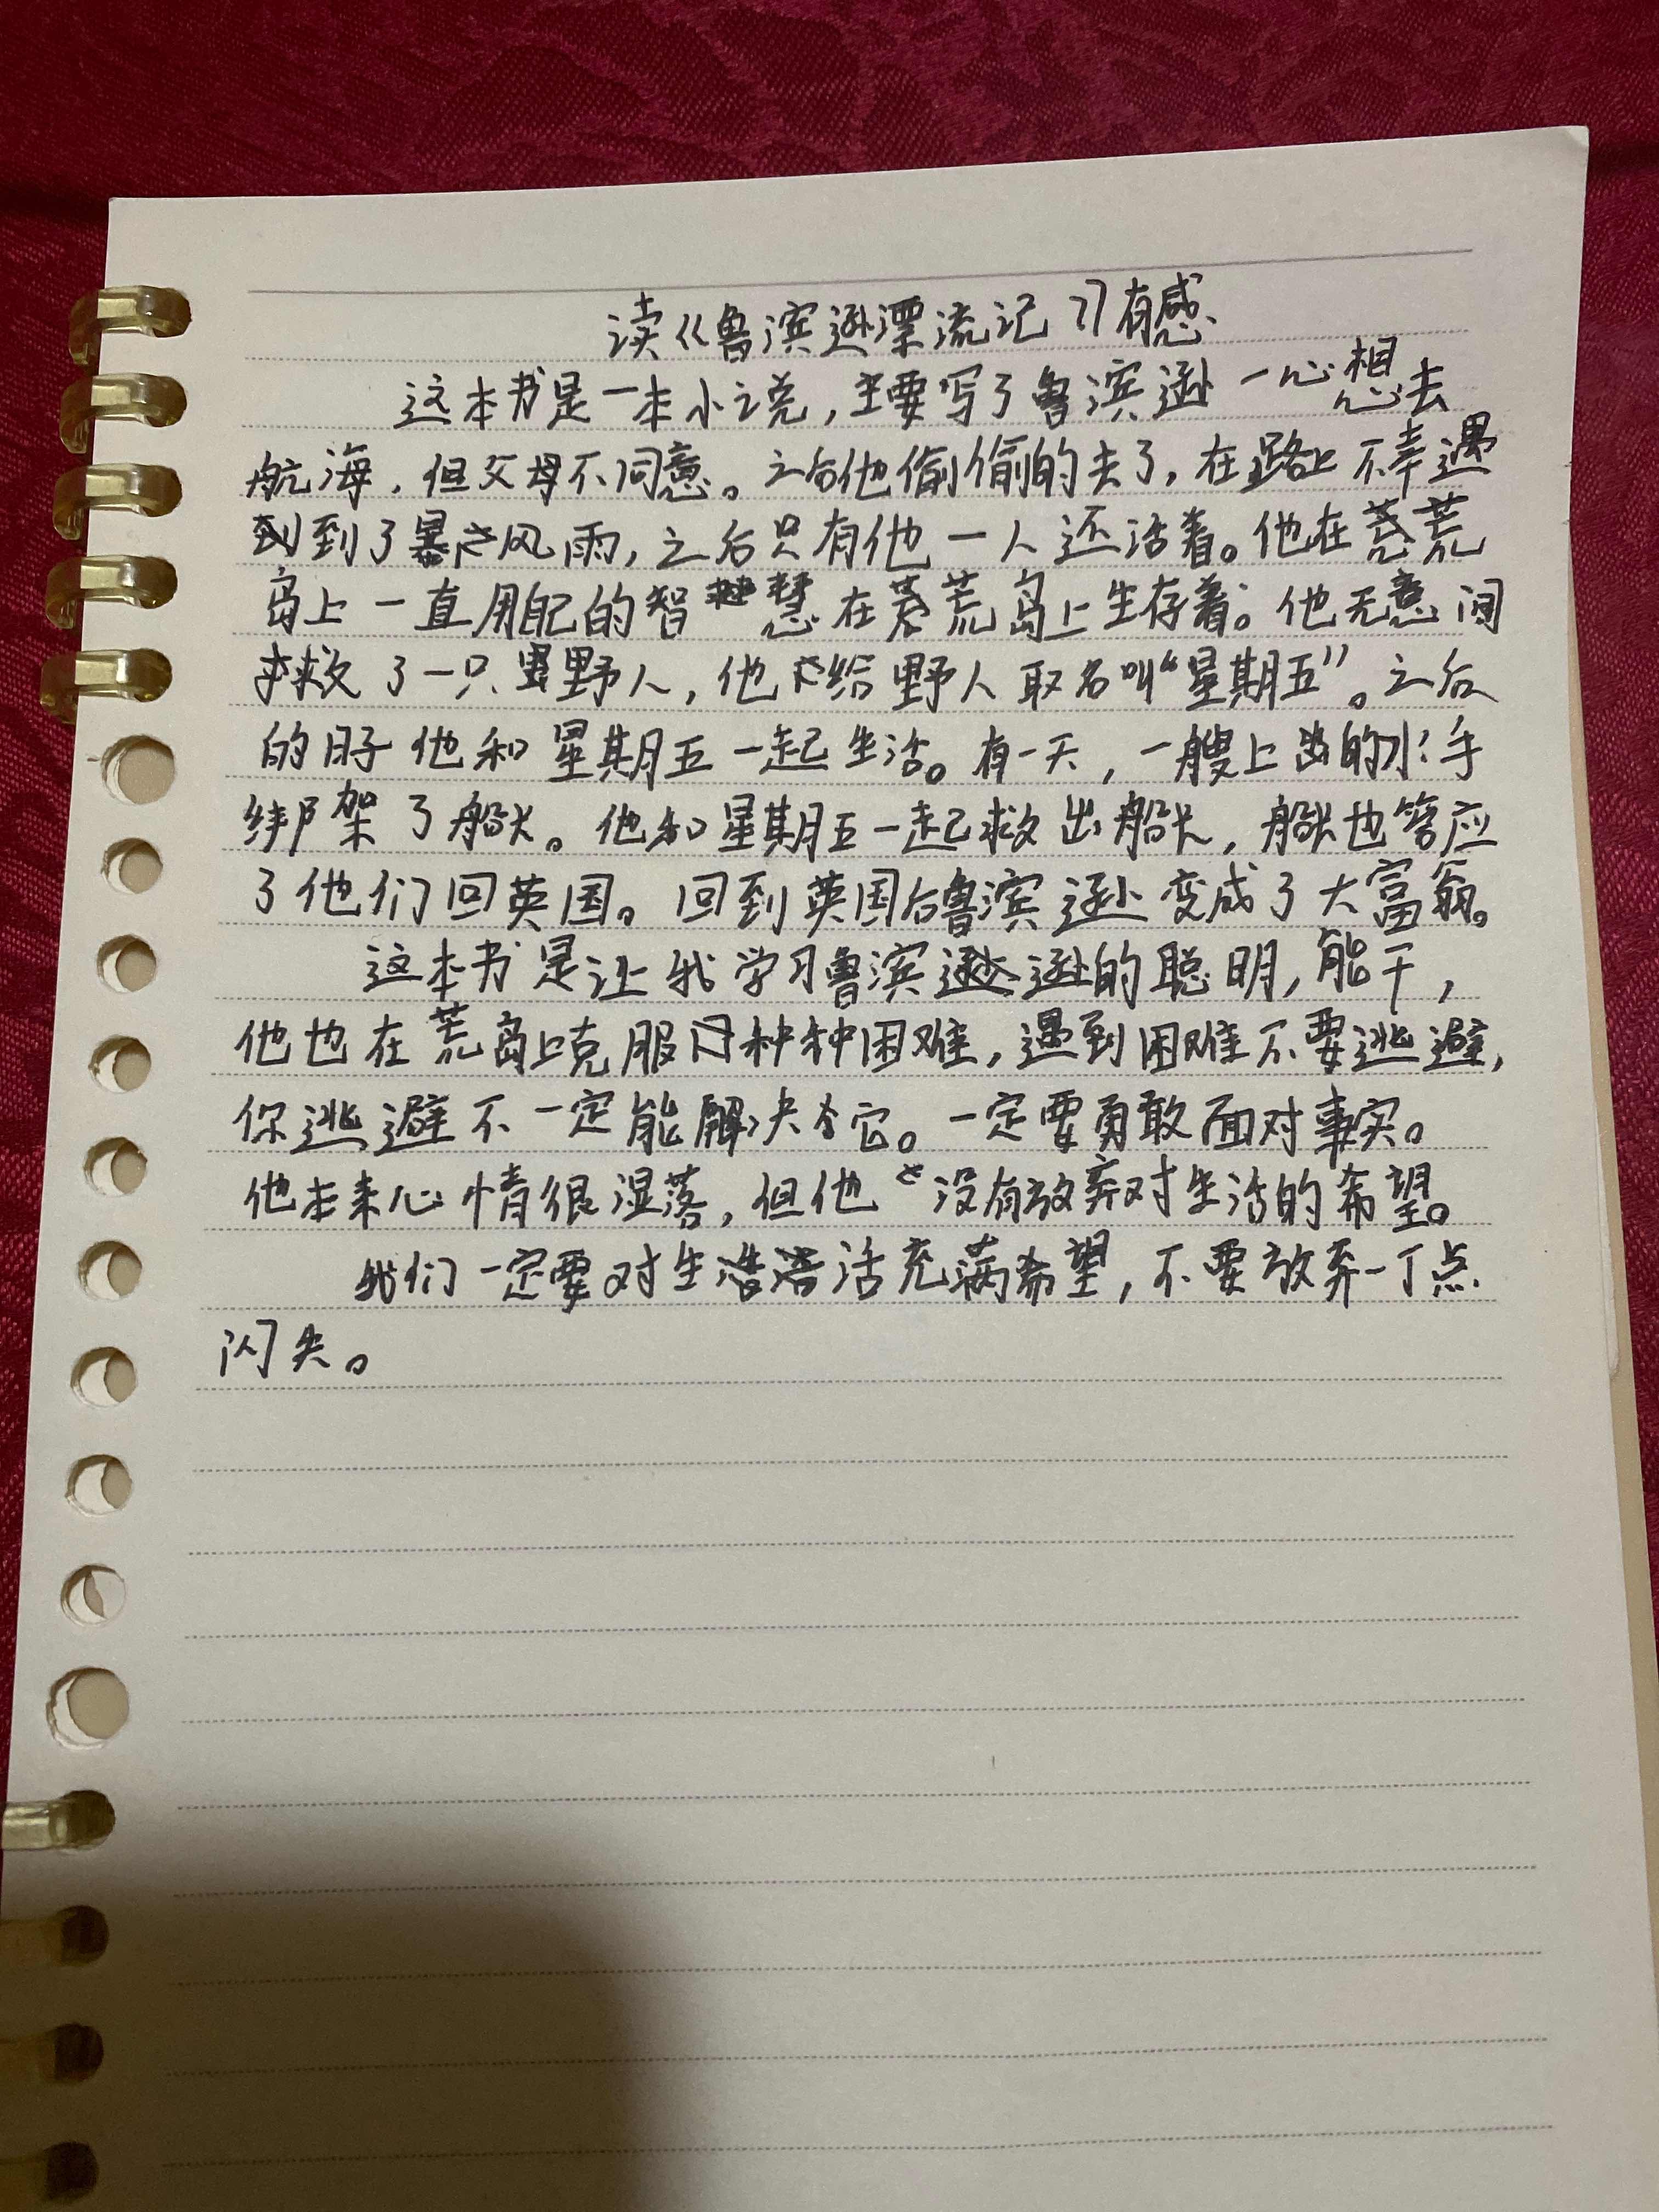 读《鲁滨逊漂流记》有感
这本书是一本小说，主要写了鲁滨逊一心想去
航海，但父母不同意。之后他偷偷的去了，在路上不幸遇
到了暴风雨，之后只有他一人还活着。他在荒
岛上一直用自己的智慧在荒岛上生存着。他无意间
救了一只野人，他给野人取名叫“星期五”。之后
的日子他和星期五一起生活。有一天，一艘上当的水手
绑架了船长。他和星期五一起救出船长，船长也答应
了他们回英国。回到英国后鲁滨逊变成了大富翁。
这本书是让我学习鲁滨逊的聪明，能干，
他也在荒岛上克服种种困难，遇到困难不要逃避，
你逃避不一定能解决它。一定要勇敢面对事实。
他本来心情很湿落，但他没有放弃对生活的希望。
我们一定要对生活充满希望，不要放弃一丁点
闪失。